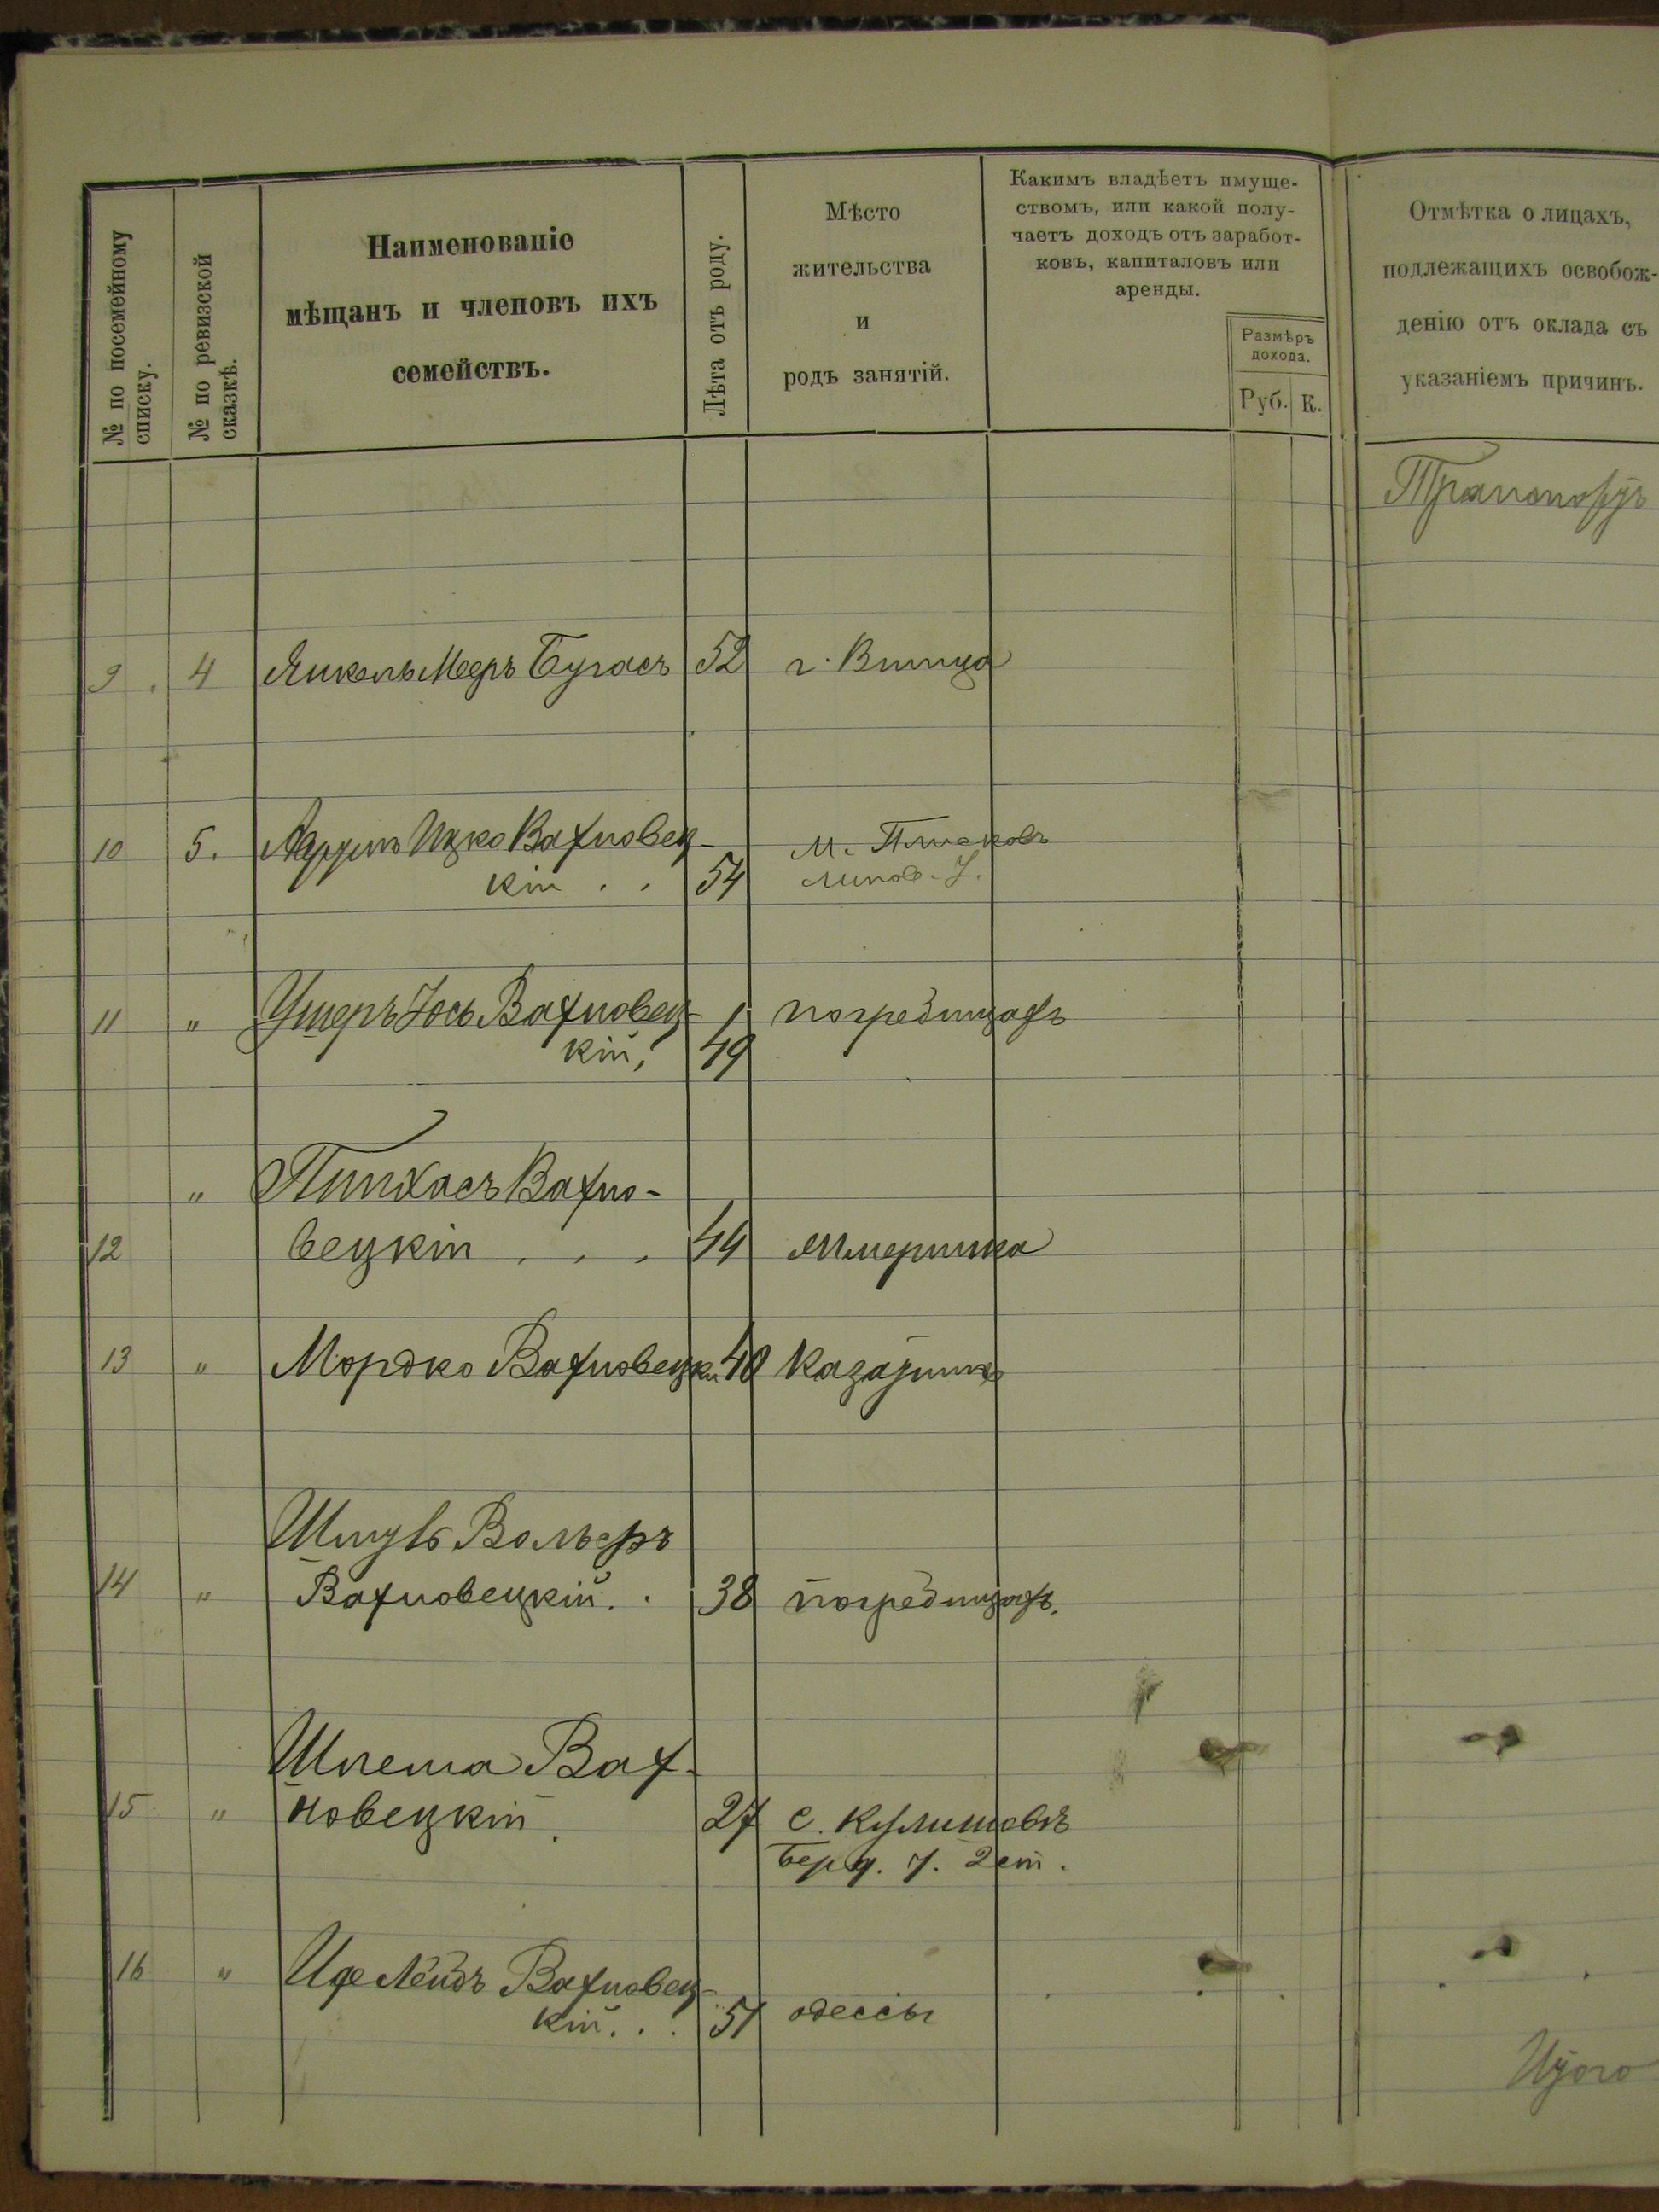 № по посемейному
списку.
№ по ревизской
сказкѣ.
Наименованіе
мѣщанъ и членовъ ихъ
семействъ.
Лѣта отъ роду.
Мѣсто
жительства
и
родъ занятій.
Какимъ владѣетъ имуще-
ствомъ, или какой полу-
чаетъ доходъ отъ заработ-
ковъ, капиталовъ или
аренды.
Размѣръ
дохода.
Руб. К.
Отмѣтка о лицахъ,
подлежащихъ освобож-
денію отъ оклада съ
указаніемъ причинъ.
Транспортъ
9. 4 Янкель Мееръ Бугасъ 52 г. Винница
10 5. Ицко Вахновец- м. Плисковъ
кій . . 54 Липов. У.
11 " Ушеръ Іось Вахновец- погребищахъ
кій, 49
" Пинхасъ Вахно-
12 вецкій . . . 44 Жмеринка
13 " Мордко Вахновецкій 40 Казатинѣ
Шмуль Вольверъ
14 " Вахновецкій. . 38 погребищахъ.
Шлема Вах-
15 " новецкій. 27 с. Кулишовкѣ
Берд. у. 2 ст.
16 " Лейбъ Вахновец-
кій. . . 51 одессы
Итого